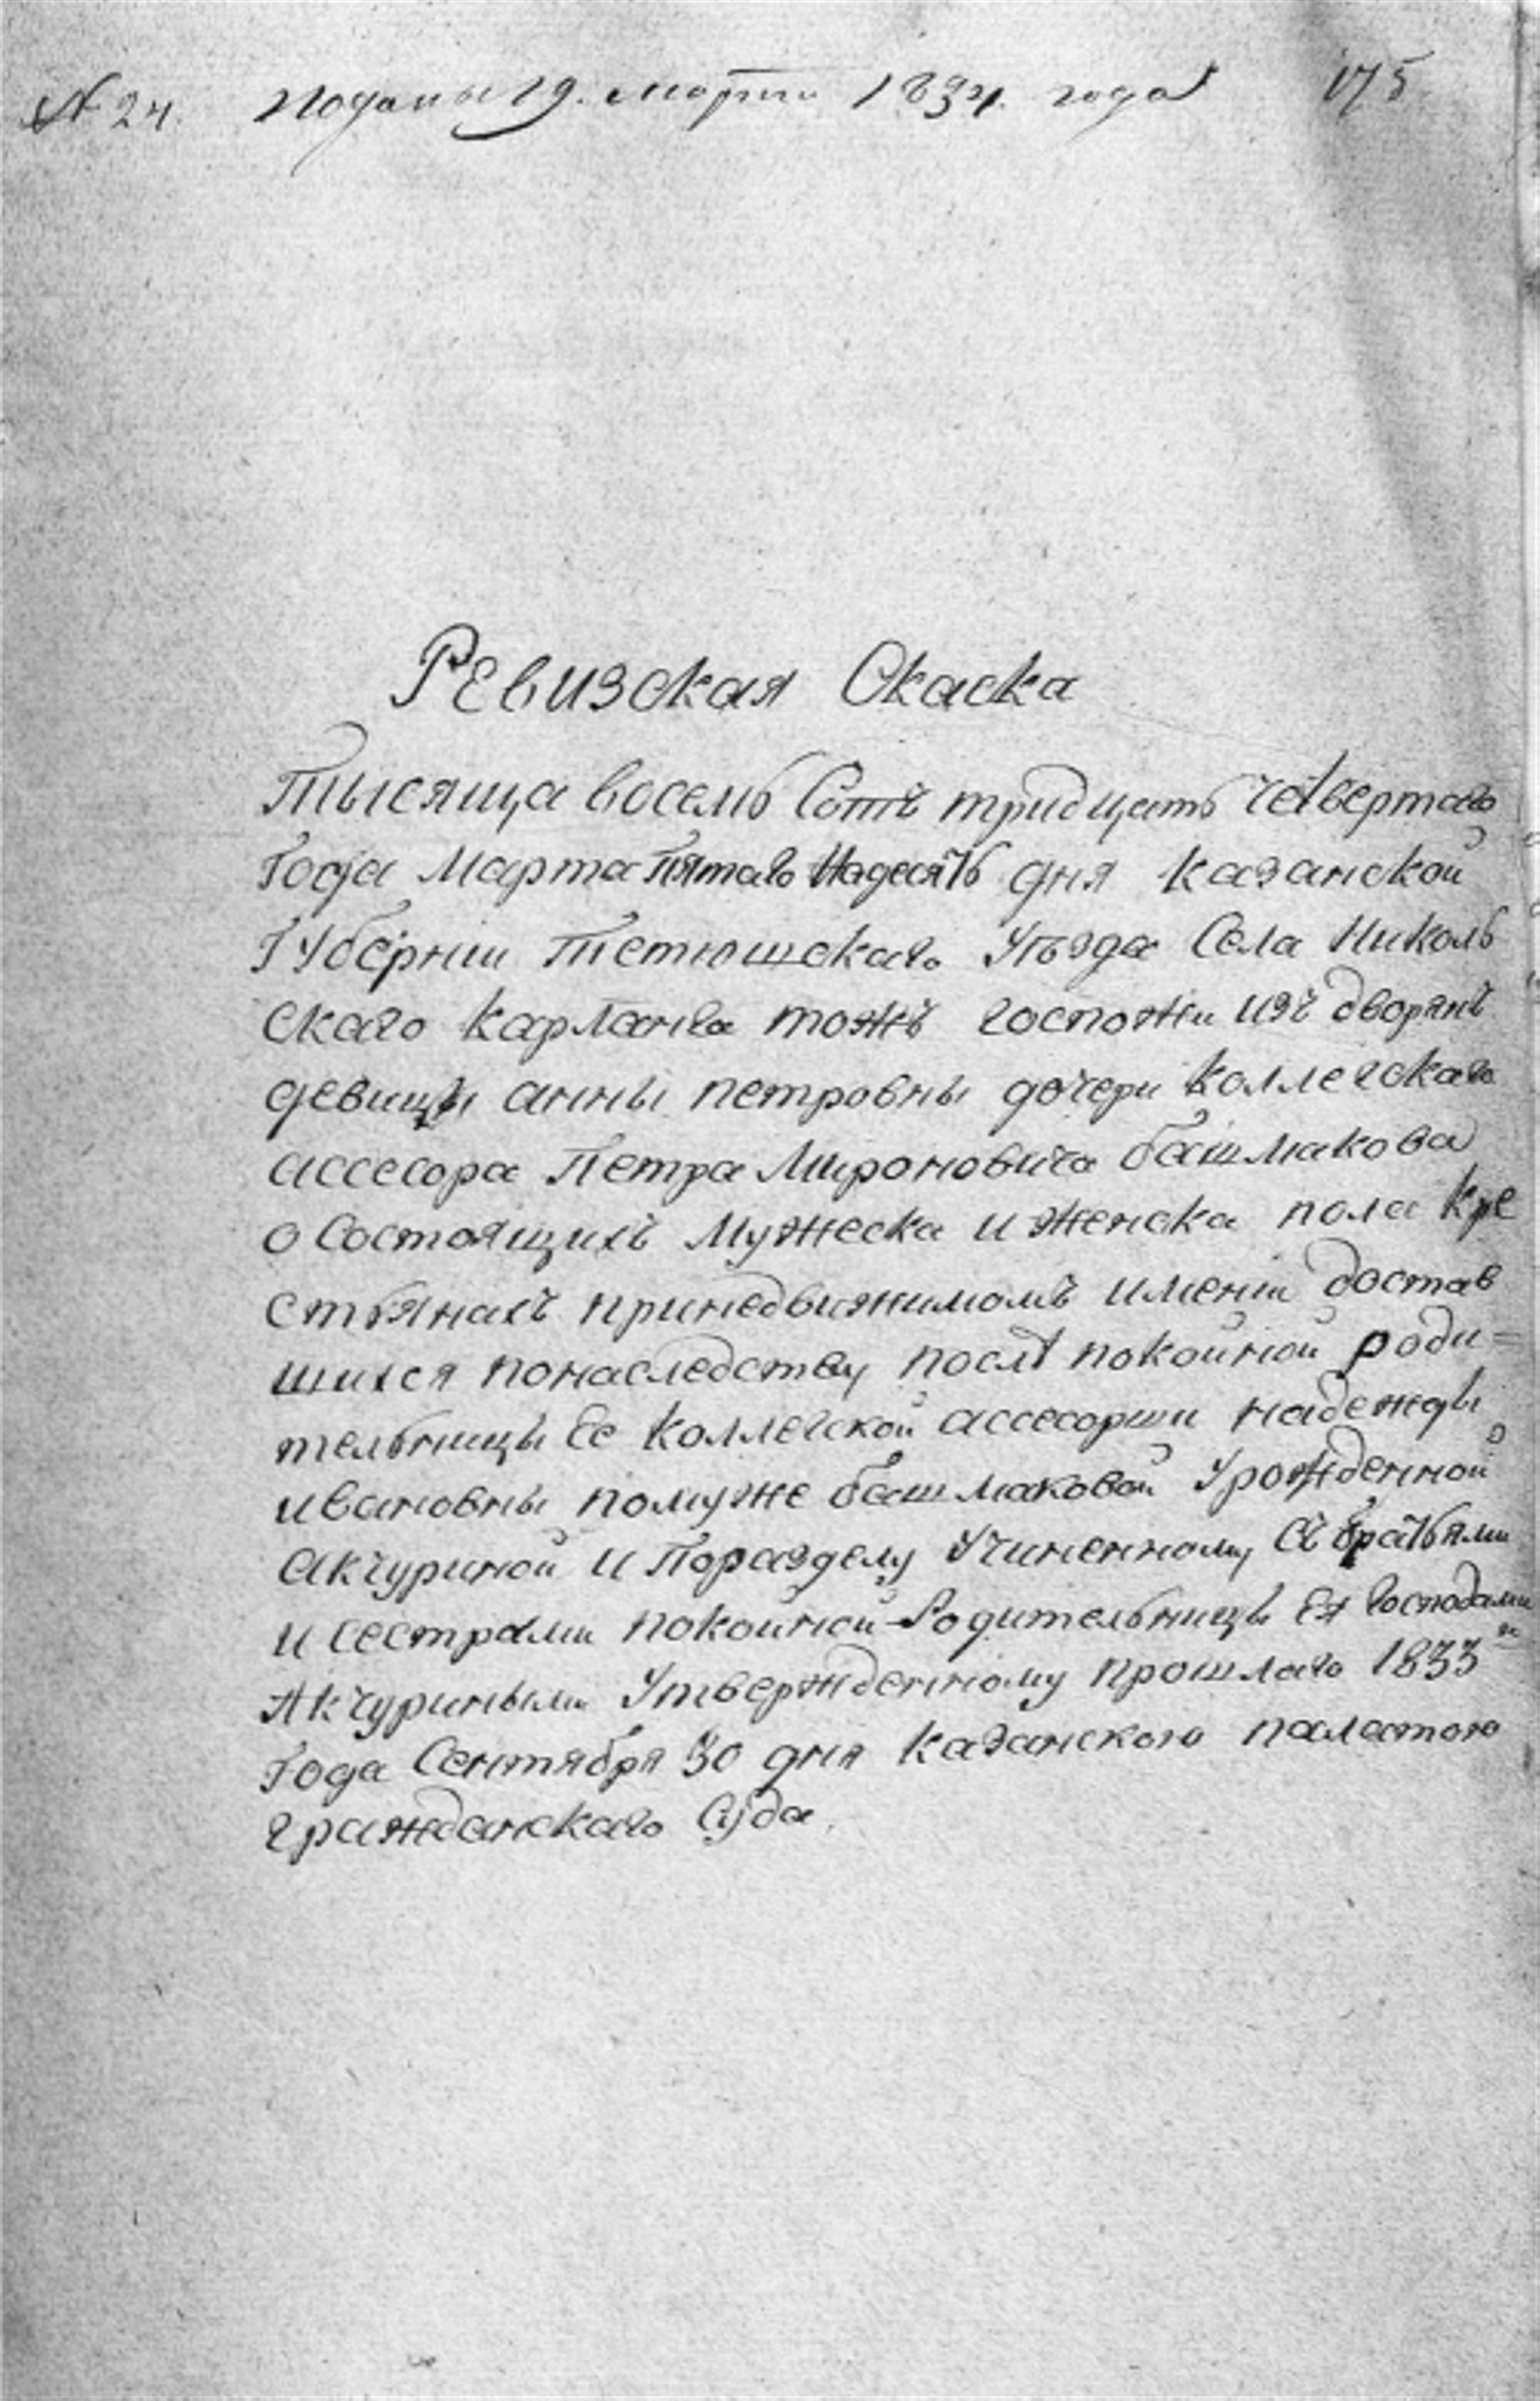 № 24. Поданы 19. марта 1834. года 175
Ревизская Скаска
Тысяща восемь Сотъ тридцать четвертаго
Года Марта пятаго Надесять дня казанской
Губернии Тетюшскаго Уѣзда Села Николь
Скаго карланга тожъ госпожи изъ дворянъ
девицы анны петровны дочери коллегскаго
ассесора Петра Мироновича башмакова
о Состоящихъ Мужеска и женска пола кре
стьянахъ принедвижимомъ имении достав
шихся понаследству послѣ покойной роди=
тельницы Ее коллегской ассесорши надежды
ивановны помуже башмаковой Урожденной
акчуриной и Поразделу Учиненному Съ братьями
и сестрами покойной Родительницы Ея Господами
Акчуриными Утвержденному прошлаго 1833го
Года Сентября 30 дня казанскою палатою
гражданскаго Суда.